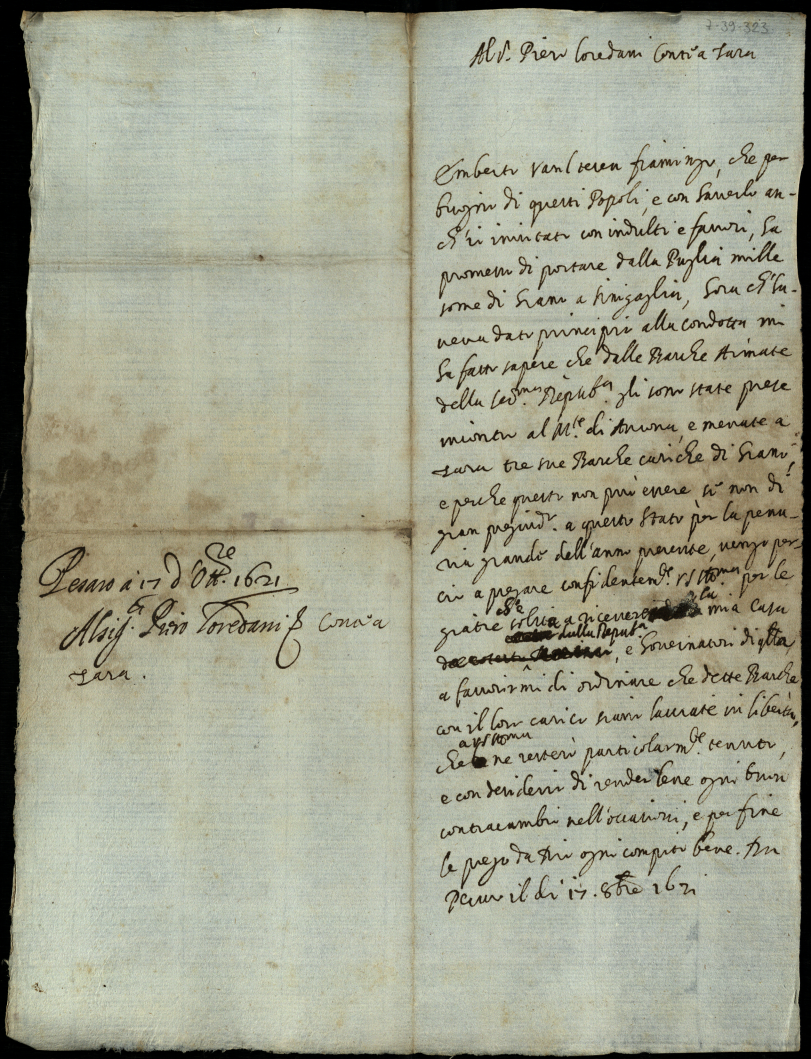 7-39-323
Al S.r Piero Loredani Conte a Zara
Umberto Vanlteren fiamingo, che per
bisogno di questi Popoli, e con haverlo an-
ch'io invitato con indulti e favori, ha
promesso di portare dalla Puglia mille
some di Grani a Sinigaglia, hora c'ha-
veva dato principio alla condotta mi
ha fatto sapere che dalle Barche Armate
della Ser.ma Repub.ca gli sono state prese
incontro al M.te di Ancona, e menate a
Zara tre sue Barche cariche di Grani,
e perche questo non può essere se non di
gran pregiud.o a questo Stato per la penu-
ria grande dell'anno presente, vengo per-
ciò a pregare confidentem.te VS Ill.ma per le
gratie che solita a ricevere la mia casa
dalla Repub.ca, e Governatori di q.lla,
a favorirmi di ordinare che dette Barche
con il loro carico siano lasciate in libertà,
che a VS Ill.ma ne resterò particolarm.te tenuto,
e con desiderio di renderlene ogni buon
contracambio nell'occasioni, e per fine
le prego da Dio ogni compito bene. Di
Pesaro il dì 17. 8bre 1621
Pesaro à 17 d'Ott.re 1621
Al Sig.r Piero Loredani Conte a
Zara.